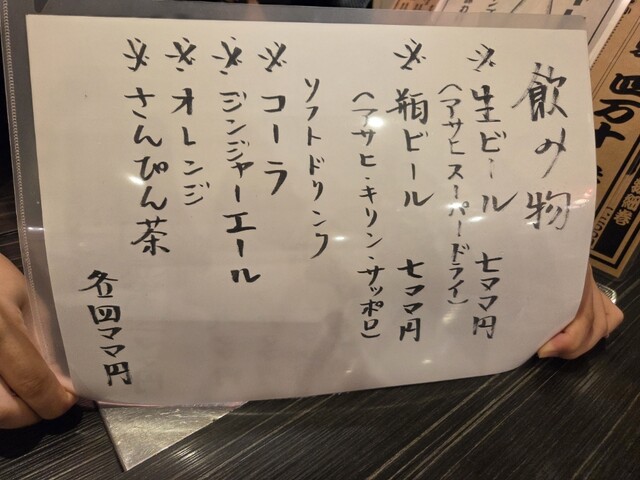 飲み物
※生ビール 七〇〇円
(アサヒスーパードライ)
※瓶ビール 七〇〇円
(アサヒ・キリン・サッポロ)
ソフトドリンク
※コーラ
※ジンジャーエール
※オレンジ
※さんぴん茶
各四〇〇円
四万十